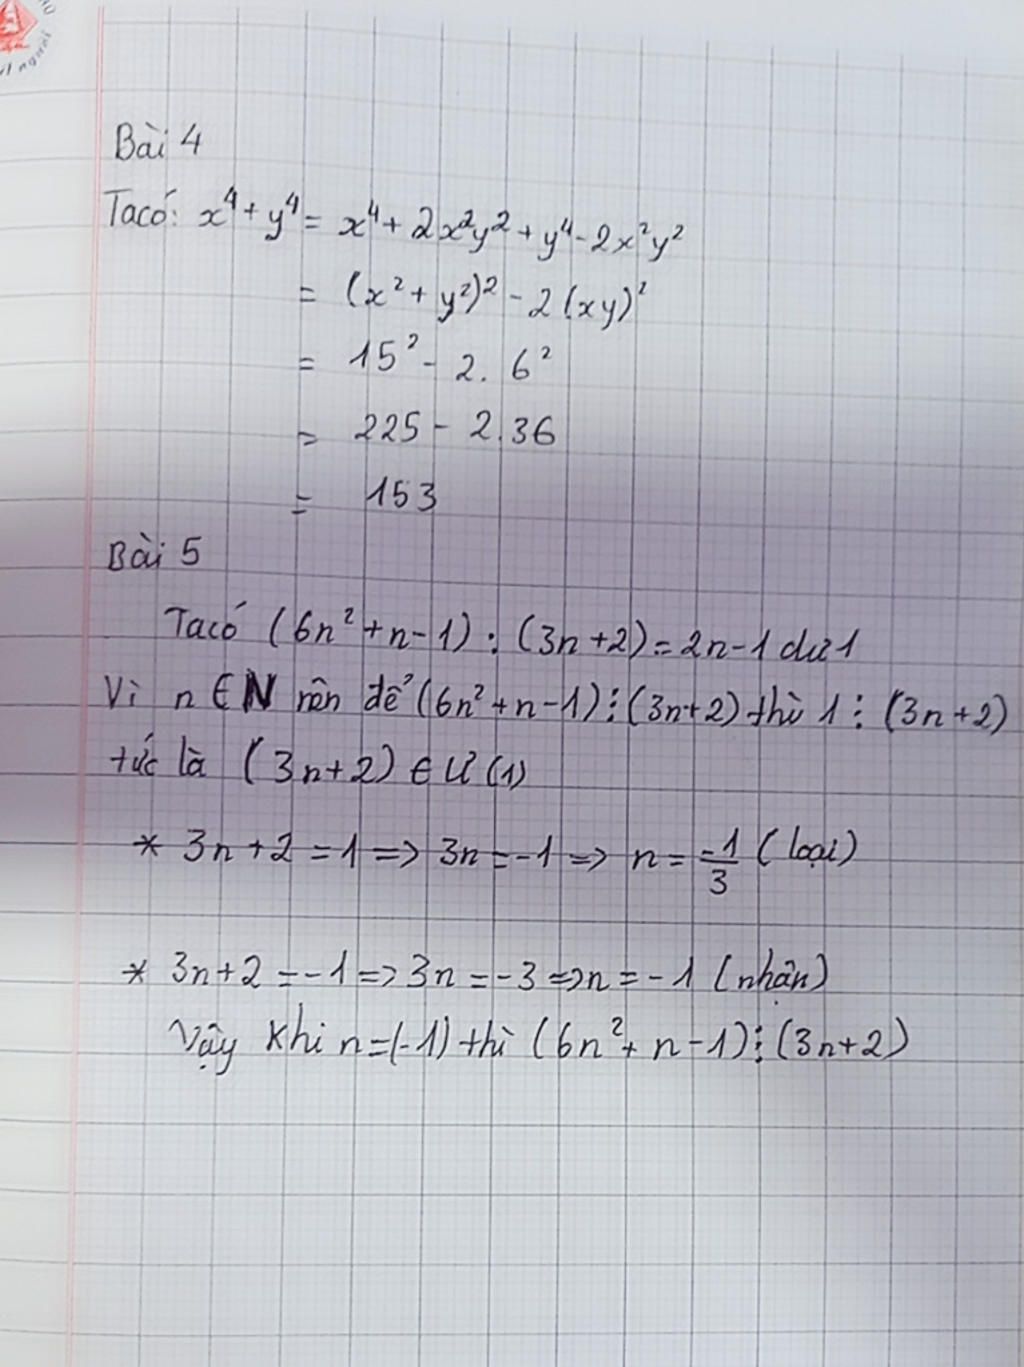 Bài 4
Ta có: x⁴ + y⁴ = x⁴ + 2x²y² + y⁴ - 2x²y²
= (x² + y²)² - 2(xy)²
= 15² - 2. 6²
= 225 - 2.36
= 153
Bài 5
Ta có (6n² + n - 1) : (3n + 2) = 2n - 1 dư 1
Vì n ∈ N nên để (6n² + n - 1) ⋮ (3n + 2) thì 1 ⋮ (3n + 2)
tức là (3n + 2) ∈ Ư(1)
* 3n + 2 = 1 => 3n = -1 => n = -1/3 (loại)
* 3n + 2 = -1 => 3n = -3 => n = -1 (nhận)
Vậy khi n = (-1) thì (6n² + n - 1) ⋮ (3n + 2)